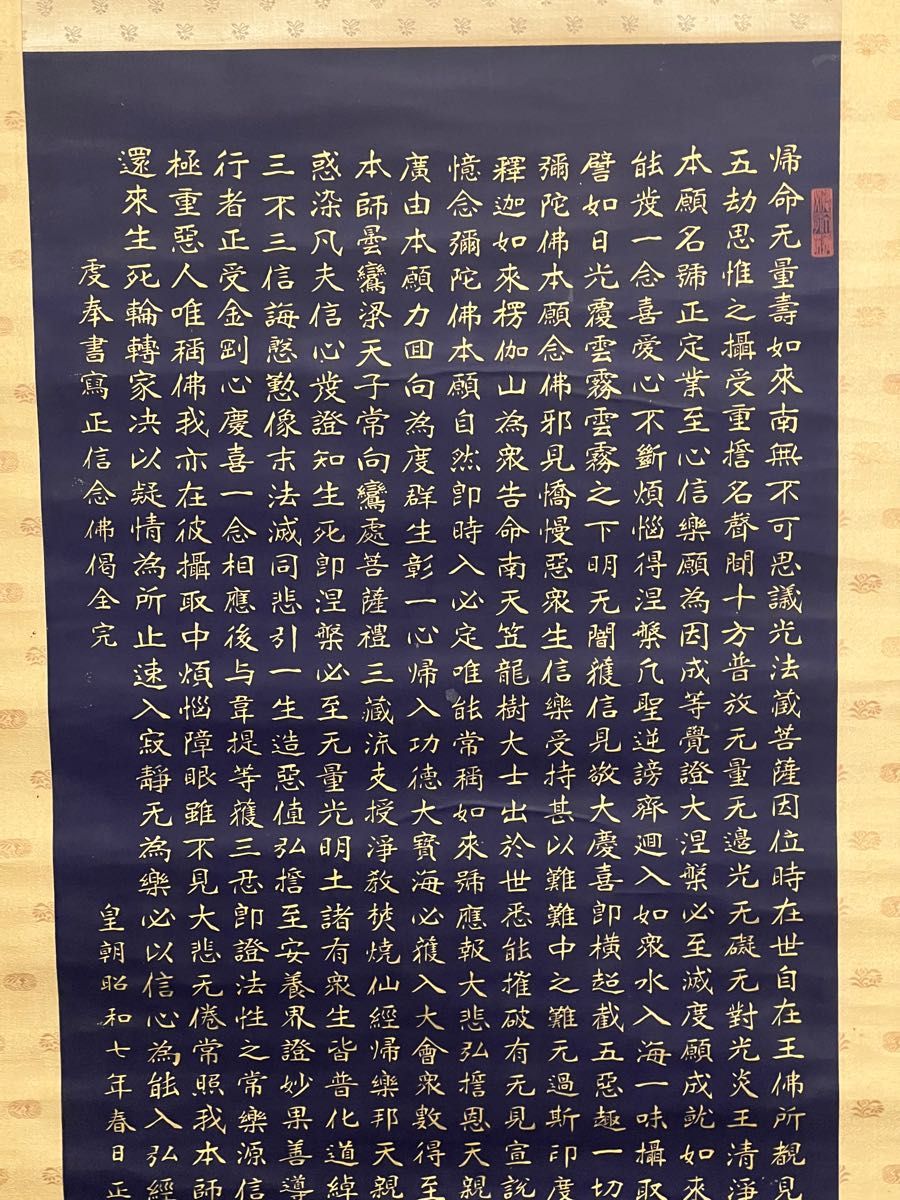 帰命无量壽如來南無不可思議光法藏菩薩因位時在世自在王佛所覩見
五劫思惟之攝受重誓名聲聞十方普放无量无邊光无礙无對光炎王清淨
本願名號正定業至心信樂願為因成等覺證大涅槃必至滅度願成就如來
能發一念喜愛心不斷煩惱得涅槃凡聖逆謗齊迴入如衆水入海一味攝取
譬如日光覆雲霧雲霧之下明无闇獲信見敬大慶喜即橫超截五惡趣一切
彌陀佛本願念佛邪見憍慢惡衆生信樂受持甚以難難中之難无過斯印度
釋迦如來楞伽山為衆告命南天笠龍樹大士出於世悉能摧破有无見宣說
憶念彌陀佛本願自然即時入必定唯能常稱如來號應報大悲弘誓恩天親
廣由本願力回向為度群生彰一心帰入功德大寶海必獲入大會衆數得至
本師曇鸞梁天子常向鸞處菩薩禮三藏流支授淨教焚燒仙經帰樂邦天親
惑染凡夫信心發證知生死即涅槃必至无量光明土諸有衆生皆普化道綽
三不三信誨慇懃像末法滅同悲引一生造惡值弘誓至安養界證妙果善導
行者正受金剛心慶喜一念相應後与韋提等獲三忍即證法性之常樂源信
極重惡人唯稱佛我亦在彼攝取中煩惱障眼雖不見大悲无倦常照我本師
還來生死輪轉家決以疑情為所止速入寂靜无為樂必以信心為能入弘經
虔奉書寫正信念佛偈全完
皇朝昭和七年春日正